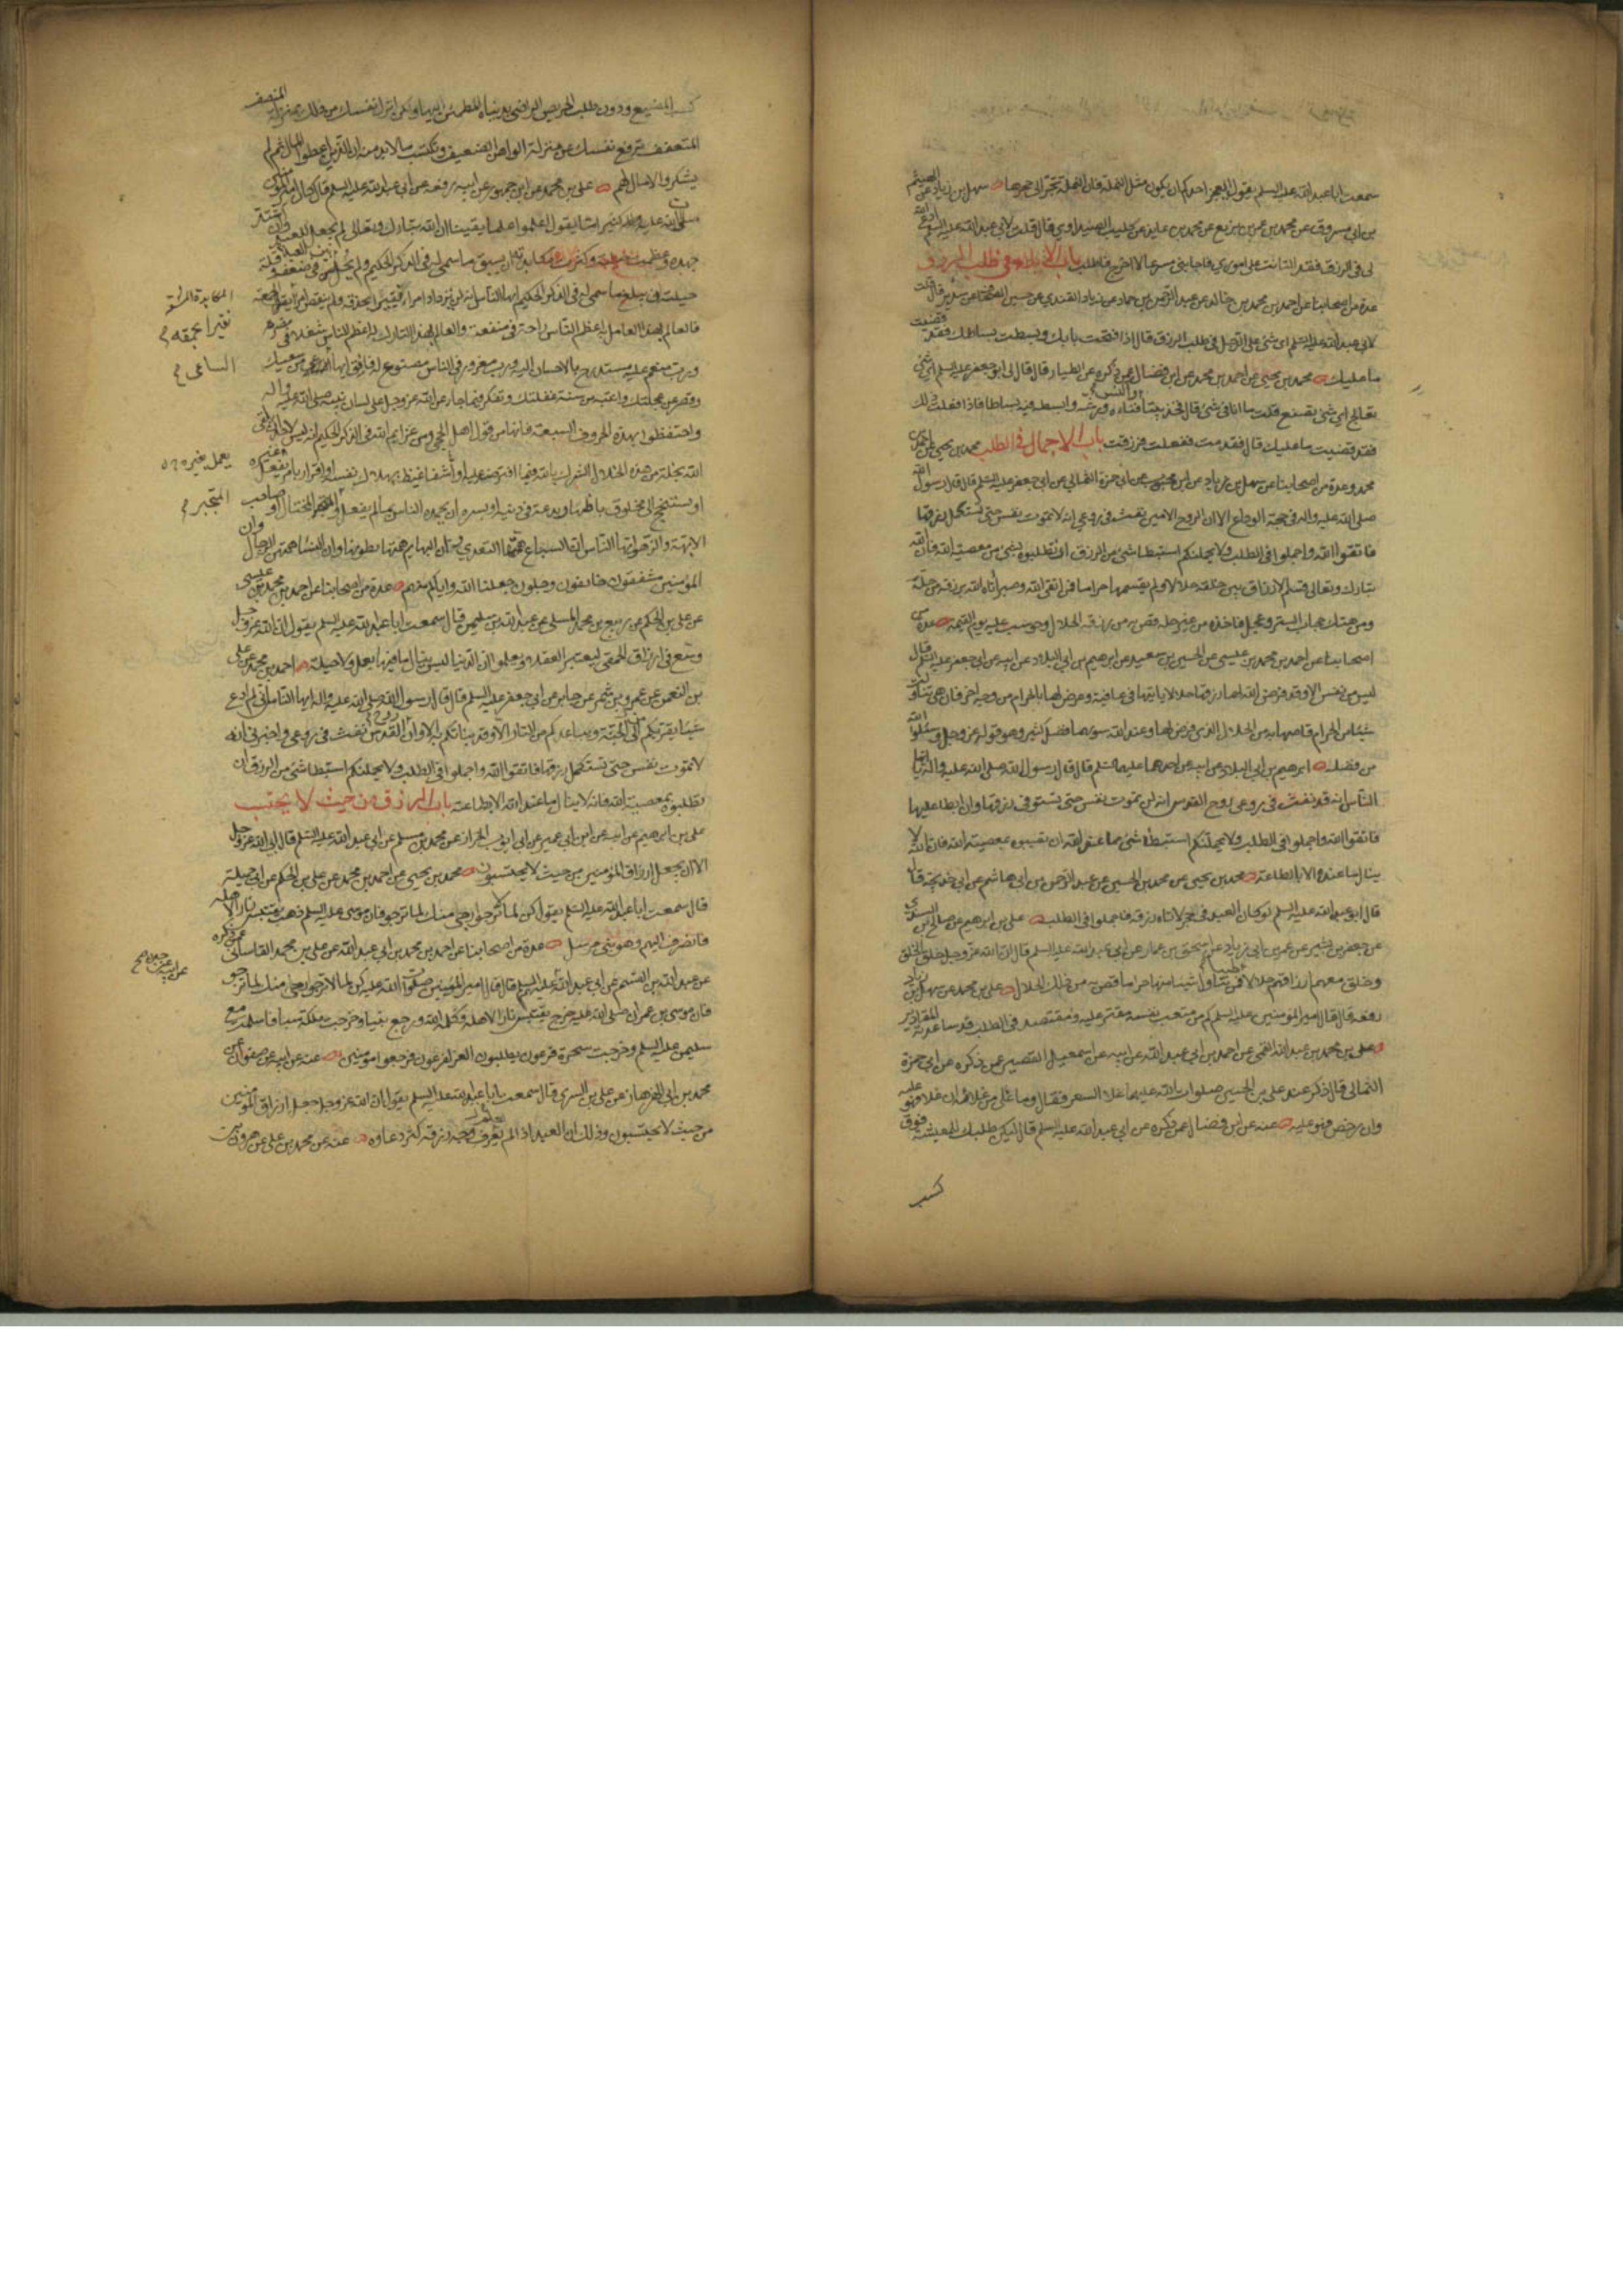 سمعت ابا عبد الله عليه السلم يقول ايعجز احدكم ان يكون مثل النملة فان النملة تجر الى جحرها سهل بن زياد عن الهيثم
بن ابي مسروق عن محمد بن عمر بن بزيع عن محمد بن عايذ عن كليب الصيداوي قال قلت لابي عبد الله عليه السلم ادع الله
لي في الرزق فقد التاثت على اموري فاجابني مسرعا لا اخرج فاطلب باب الابلاء في طلب الرزق
عدة من اصحابنا عن احمد بن محمد بن خالد عن عبد الرحمن بن حماد عن زياد القندي عن حسين الصحاف عن سدير قال قلت
لابي عبد الله عليه السلم اي شئ على الرجل في طلب الرزق فقال اذا فتحت بابك وبسطت بساطك فقد قضيت
ما عليك محمد بن يحيى عن احمد بن محمد عن ابن فضال عمن ذكره عن الطيار قال قال لي ابو جعفر عليه السلم اي شئ
تعالج اي شئ تصنع قلت ما انا في شئ قال فخذ بيتا واكنس فناءه ورشه وابسط فيه بساطا فاذا فعلت ذلك
فقد قضيت ما عليك قال فقدمت ففعلت فرزقت باب الاجمال في الطلب محمد بن يحيى عن احمد بن
محمد وعدة من اصحابنا عن سهل بن زياد عن ابن محبوب عن ابي حمزة الثمالي عن ابي جعفر عليه السلم قال قال رسول الله
صلى الله عليه واله في حجة الوداع الا ان الروح الامين نفث في روعي انه لا تموت نفس حتى تستكمل رزقها
فاتقوا الله واجملوا في الطلب ولا يحملنكم استبطا شئ من الرزق ان تطلبوه بشئ من معصية الله فان الله
تبارك وتعالى قسم الارزاق بين خلقه حلالا ولم يقسمها حراما فمن اتقى الله وصبر اتاه الله برزقه من حله
ومن هتك حجاب الستر وعجل فاخذه من غير حله قص به من رزقه الحلال وحوسب عليه يوم القيمة عدة من
اصحابنا عن احمد بن محمد بن عيسى عن الحسين بن سعيد عن ابرهيم بن ابي البلاد عن ابيه عن ابي جعفر عليه السلم قال
ليس من نفس الا وقد فرض الله لها رزقها حلالا ياتيها في عافية وعرض لها بالحرام من وجه اخر فان هي تناولت
شيئا من الحرام قاصها به من الحلال الذي فرض لها وعند الله سواهما فضل كثير وهو قوله عز وجل وسئلوا الله
من فضله ابرهيم بن ابي البلاد عن ابيه عن احدهما عليهما السلم قال قال رسول الله صلى الله عليه واله يا ايها
الناس انه قد نفث في روعي روح القدس انه لن تموت نفس حتى تستوفى رزقها وان ابطا عليها
فاتقوا الله واجملوا في الطلب ولا يحملنكم استبطا شئ مما عند الله ان تصيبوه بمعصية الله فان الله لا
ينال ما عنده الا بالطاعة محمد بن يحيى عن محمد بن الحسين عن عبد الرحمن بن ابي هاشم عن ابي خديجة قال
قال ابو عبد الله عليه السلم لو كان العبد في جحر لاتاه رزقه فاجملوا في الطلب علي بن ابرهيم عن صالح بن السندي
عن جعفر بن بشير عن عمر بن ابي زياد عن اسحق بن عمار عن ابي عبد الله عليه السلم قال ان الله عز وجل خلق الخلق
وخلق معهم ارزاقهم حلالا طيبا فمن تناول شيئا منها حراما قص به من ذلك الحلال علي بن محمد عن سهل بن زياد
رفعه قال قال امير المؤمنين عليه السلم كم من متعب نفسه مقتر عليه ومقتصد في الطلب قد ساعدته المقادير
علي بن محمد بن عبد الله القمي عن احمد بن ابي عبد الله عن ابيه عن اسمعيل القصير عمن ذكره عن ابي حمزة
الثمالي قال ذكر عند علي بن الحسين صلوات الله عليهما غلا السعر فقال وما علي من غلائه ان غلا فهو عليه
وان رخص فهو عليه عنه عن ابن فضال عمن ذكره عن ابي عبد الله عليه السلم قال ليكن طلبك للمعيشة فوق
كسب
كسب المضيع ودون طلب الحريص الراضي بدنياه المطمئن اليها ولكن انزل نفسك من ذلك بمنزلة المنصف
المتعفف ترفع نفسك عن منزلة الواهن الضعيف وتكتسب ما لا بد منه ان الذين اعطوا المال ثم لم
يشكروا لا مال لهم علي بن محمد عن ابن جمهور عن ابيه رفعه عن ابي عبد الله عليه السلم قال كان امير المؤمنين
صلى الله عليه كثيرا ما يقول اعلموا علما يقينا ان الله تبارك وتعالى لم يجعل للعبد وان اشتد
جهده وعظمت حيلته وكثرت مكابدته ان يسبق ما سمى له في الذكر الحكيم ولم يحل بين العبد في ضعفه وقلة
حيلته ان يبلغ ما سمى له في الذكر الحكيم ايها الناس انه لن يزداد امرء نقيرا بحذقه ولم ينتقص امرء نقيرا لحمقه
فالعالم لهذا العامل به اعظم الناس راحة في منفعة والعالم لهذا التارك له اعظم الناس شغلا في مضرة
ورب منعم عليه مستدرج بالاحسان اليه ورب مغرور في الناس مصنوع له فافق ايها الساعي من سعيك
وقصر من عجلتك وانتبه من سنة غفلتك وتفكر فيما جاء عن الله عز وجل على لسان نبيه صلى الله عليه واله
واحتفظوا بهذه الحروف السبعة فانها من قول اهل الحجى ومن عزايم الله في الذكر الحكيم انه ليس لاحد ان يلقى
الله بخلة من هذه الخلال الشرك بالله فيما افترض عليه او اشفا غيظ بهلاك نفسه او اقرار بامر يفعل غيره
او يستنجح الى مخلوق باظهار بدعة في دينه او يسره ان يحمده الناس بما لم يفعل والمتجبر المختال وصاحب
الابهة والزهو ايها الناس ان السباع همتها التعدي وان البهايم همتها بطونها وان النساء همتهن الرجال وان
المؤمنين مشفقون خائفون وجلون جعلنا الله واياكم منهم عدة من اصحابنا عن احمد بن محمد بن عيسى
عن علي بن الحكم عن ربيع بن محمد المسلي عن عبد الله بن سليمن قال سمعت ابا عبد الله عليه السلم يقول ان الله عز وجل
وسع في ارزاق الحمقى ليعتبر العقلاء ويعلموا ان الدنيا ليس ينال ما فيها بعمل ولا حيلة احمد بن محمد عن علي
بن النعمن عن عمرو بن شمر عن جابر عن ابي جعفر عليه السلم قال قال رسول الله صلى الله عليه واله ايها الناس اني لم ادع
شيئا يقربكم الى الجنة ويباعدكم من النار الا وقد نبأتكم به الا وان روح القدس نفث في روعي واخبرني ان
لا تموت نفس حتى تستكمل رزقها فاتقوا الله واجملوا في الطلب ولا يحملنكم استبطا شئ من الرزق ان
تطلبوه بمعصية الله فانه لا ينال ما عند الله الا بطاعته باب الرزق من حيث لا يحتسب
علي بن ابرهيم عن ابيه عن ابن ابي عمير عن ابي ايوب الخزاز عن محمد بن مسلم عن ابي عبد الله عليه السلم قال ابى الله عز وجل
الا ان يجعل ارزاق المؤمنين من حيث لا يحتسبون محمد بن يحيى عن احمد بن محمد عن علي بن الحكم عن ابي جميلة
قال سمعت ابا عبد الله عليه السلم يقول كن لما لا ترجوا ارجى منك لما ترجو فان موسى عليه السلم ذهب يقتبس نارا لاهله
فانصرف اليهم وهو نبي مرسل عدة من اصحابنا عن احمد بن محمد بن ابي عبد الله عن علي بن محمد القاساني عمن ذكره
عن عبد الله بن القسم عن ابي عبد الله عليه السلم قال قال امير المؤمنين صلوات الله عليه كن لما لا ترجو ارجى منك لما ترجو
فان موسى بن عمران صلى الله عليه خرج يقتبس نارا لاهله فكلمه الله ورجع نبيا وخرجت ملكة سبا فاسلمت مع
سليمن عليه السلم وخرجت سحرة فرعون يطلبون العز لفرعون فرجعوا مؤمنين عنه عن ابيه عن صفوان عن
محمد بن ابي الهزهاز عن علي بن السري قال سمعت ابا عبد الله عليه السلم يقول ان الله عز وجل جعل ارزاق المؤمنين
من حيث لا يحتسبون وذلك ان العبد اذا لم يعرف وجه رزقه كثر دعاؤه عنه عن محمد بن علي عن هرون بن
نقيرا بحمقه
الساعي
يعمل بغيره
المتجبر
عن ابيه عن جده